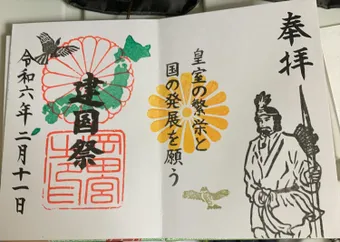 奉拝
皇室の繁栄と
国の発展を願う
建国祭
令和六年二月十一日